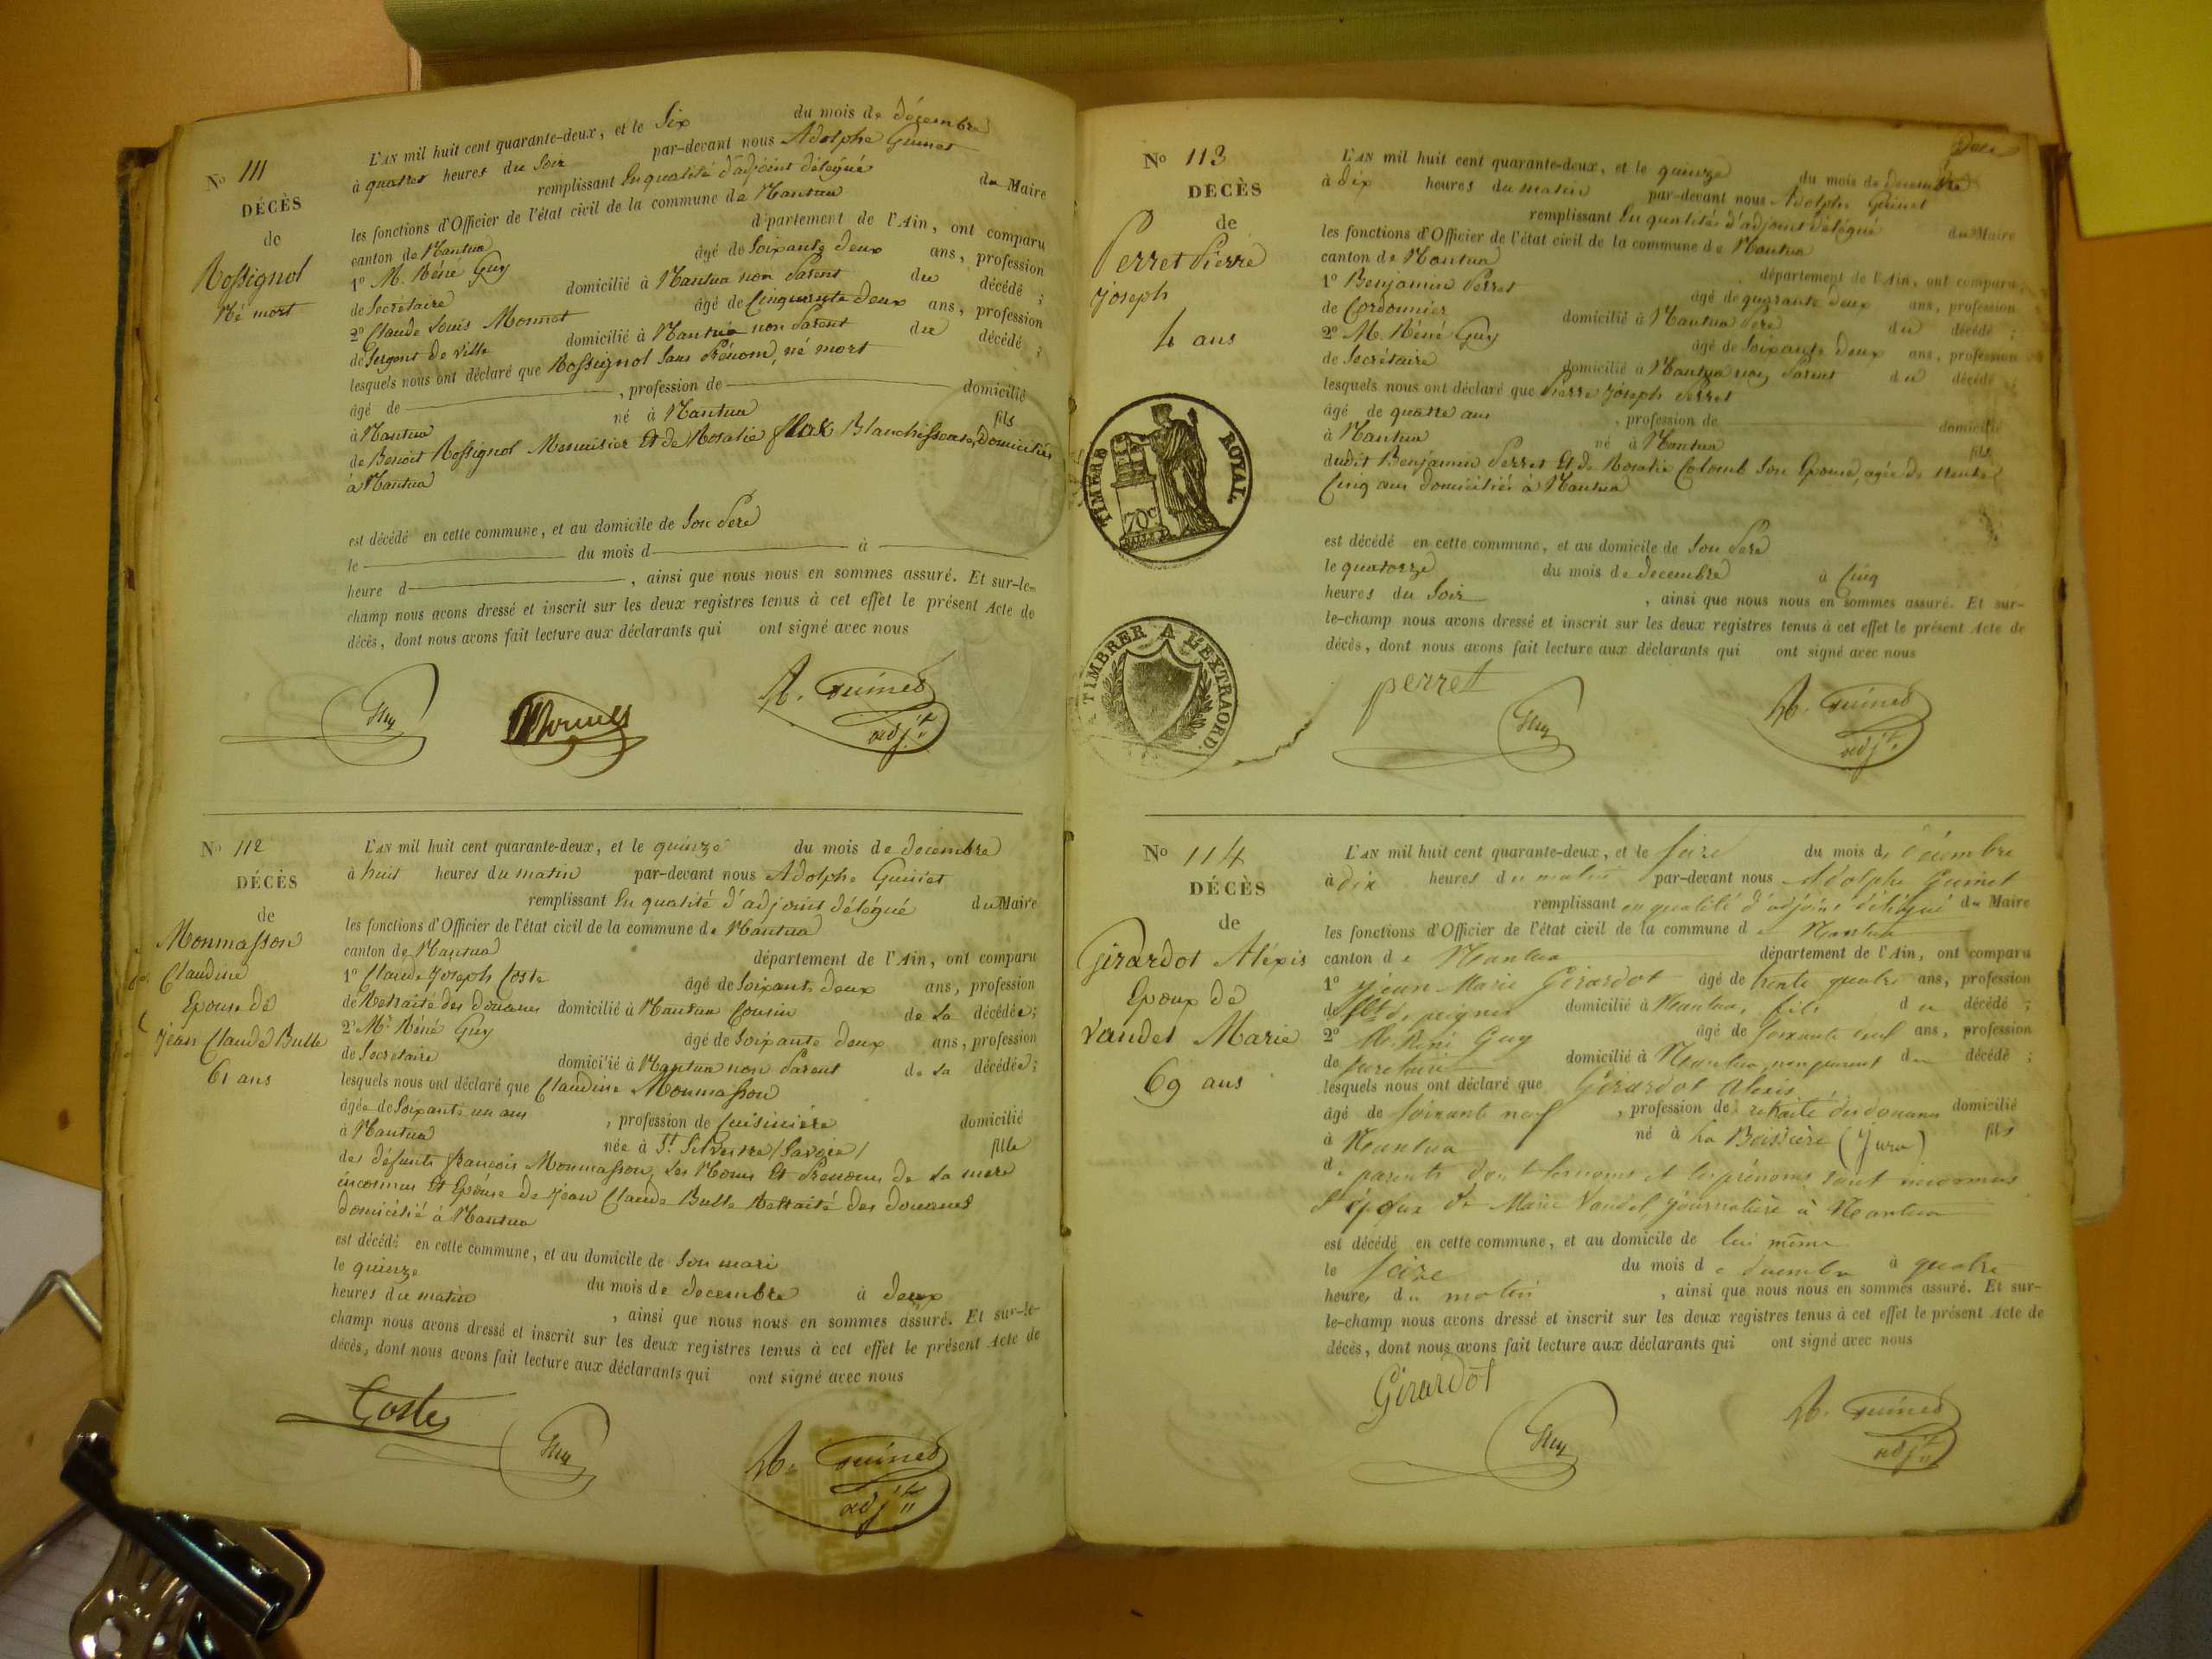 No 111
DÉCÈS
de
Rossignol
Né mort
L'AN mil huit cent quarante-deux, et le Six du mois de décembre
à quatres heures du Soir par-devant nous Adolphe Guinet
remplissant En qualité d'adjoint délégué du Maire
les fonctions d'Officier de l'état civil de la commune de Nantua
canton de Nantua département de l'Ain, ont comparu
1o M. Réné Guy âgé de Soixante deux ans, profession
de Secrétaire domicilié à Nantua non Parent du décédé ;
2o Claude Louis Monnet âgé de Cinquante deux ans, profession
de Sergent de Ville domicilié à Nantua non Parent du décédé ;
lesquels nous ont déclaré que Rossignol Sans Prénom, né mort
âgé de , profession de domicilié
à Nantua né à Nantua fils
de Benoit Rossignol Menuisier Et de Rosalie Blanchisseuse, domiciliés
à Nantua
est décédé en cette commune, et au domicile de Son Père
le du mois d à
heure d , ainsi que nous nous en sommes assuré. Et sur-le-
champ nous avons dressé et inscrit sur les deux registres tenus à cet effet le présent Acte de
décès, dont nous avons fait lecture aux déclarants qui ont signé avec nous
Guy A. Guinet
adjt
No 112
DÉCÈS
de
Monmasson
Claudine
Epouse de
Jean Claude Bulle
61 ans
L'AN mil huit cent quarante-deux, et le quinze du mois de décembre
à huit heures du matin par-devant nous Adolphe Guinet
remplissant En qualité d'adjoint délégué du Maire
les fonctions d'Officier de l'état civil de la commune de Nantua
canton de Nantua département de l'Ain, ont comparu
1o Claude Joseph Coste âgé de Soixante deux ans, profession
de Retraité des Douanes domicilié à Nantua Cousin de La décédée;
2o Mr Réné Guy âgé de Soixante deux ans, profession
de Secretaire domicilié à Nantua non Parent de La décédée;
lesquels nous ont déclaré que Claudine Monmasson
âgée de Soixante un ans , profession de Cuisinière domicilié
à Nantua née à St Silvestre (Savoie) fille
des défunts françois Monmasson, Les Noms Et Prenoms de La mere
inconnus Et Epouse de Jean Claude Bulle Retraité des Douanes
domicilié à Nantua
est décédé en cette commune, et au domicile de Son mari
le quinze du mois de decembre à deux
heures du matin , ainsi que nous nous en sommes assuré. Et sur-le-
champ nous avons dressé et inscrit sur les deux registres tenus à cet effet le présent Acte de
décès, dont nous avons fait lecture aux déclarants qui ont signé avec nous
Coste Guy A. Guinet
adjt
No 113
DÉCÈS
de
Perret Pierre
Joseph
4 ans
TIMBRE ROYAL
70c
TIMBRER A L'EXTRAORD.
L'AN mil huit cent quarante-deux, et le quinze du mois de decembre
à dix heures du matin par-devant nous Adolphe Guinet
remplissant En qualité d'adjoint délégué du Maire
les fonctions d'Officier de l'état civil de la commune de Nantua
canton de Nantua département de l'Ain, ont comparu
1o Benjamin Perret âgé de quarante deux ans, profession
de Cordonnier domicilié à Nantua Père du décédé ;
2o M. Réné Guy âgé de Soixante deux ans, profession
de Secrétaire domicilié à Nantua non Parent du décédé ;
lesquels nous ont déclaré que Pierre Joseph Perret
âgé de quatre ans , profession de domicilié
à Nantua né à Nantua fils
dudit Benjamin Perret Et de Rosalie Colomb Son Epouse, agée de trente
Cinq ans domiciliés à Nantua
est décédé en cette commune, et au domicile de Son Père
le quatorze du mois de decembre à Cinq
heures du Soir , ainsi que nous nous en sommes assuré. Et sur-
le-champ nous avons dressé et inscrit sur les deux registres tenus à cet effet le présent Acte de
décès, dont nous avons fait lecture aux déclarants qui ont signé avec nous
perret Guy A. Guinet
adjt
No 114
DÉCÈS
de
Girardot Aléxis
Epoux de
Vandel Marie
69 ans
L'AN mil huit cent quarante-deux, et le seize du mois de décembre
à dix heures du matin par-devant nous Adolphe Guinet
remplissant en qualité d'adjoint délégué du Maire
les fonctions d'Officier de l'état civil de la commune de Nantua
canton de Nantua département de l'Ain, ont comparu
1o Jean Marie Girardot âgé de trente quatre ans, profession
de peignes domicilié à Nantua, fils du décédé ;
2o M. Réné Guy âgé de soixante ans, profession
de secretaire domicilié à Nantua non parent du décédé ;
lesquels nous ont déclaré que Girardot Alexis
âgé de soixante neuf , profession de retraité des douanes domicilié
à Nantua né à La Boissière (Jura) fils
de parents dont les noms et les prénoms sont inconnus
et époux de Marie Vandel, journalière à Nantua
est décédé en cette commune, et au domicile de lui même
le seize du mois de decembre à quatre
heures du matin , ainsi que nous nous en sommes assuré. Et sur-
le-champ nous avons dressé et inscrit sur les deux registres tenus à cet effet le présent Acte de
décès, dont nous avons fait lecture aux déclarants qui ont signé avec nous
Girardot Guy A. Guinet
adjt